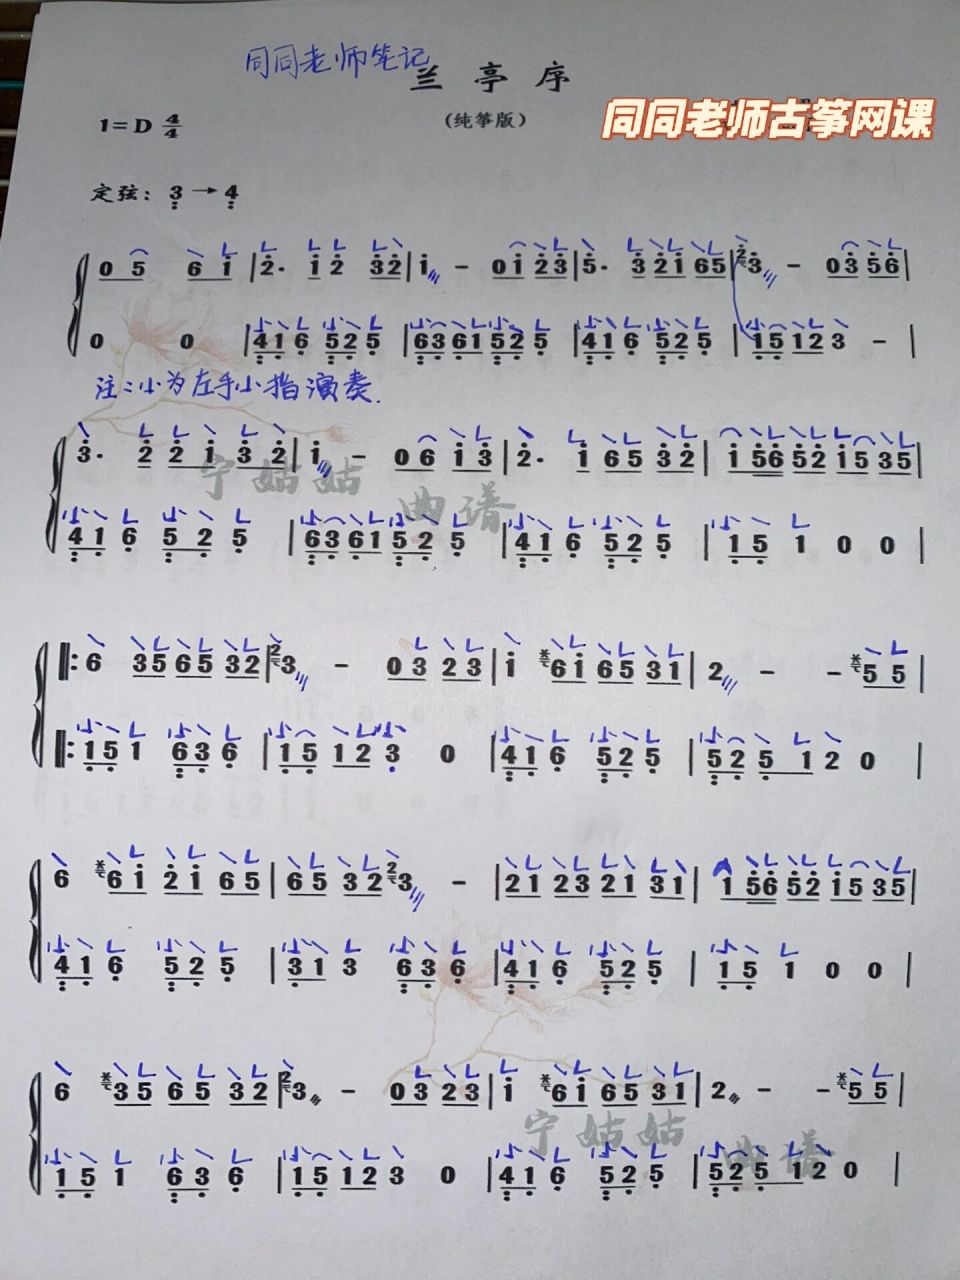 同同老师笔记
兰亭序
(纯筝版)
同同老师古筝网课
1=D 4/4
定弦: 3→4
0 5 6 i | 2· i 2 3 2 | i - 0 i 2 3 | 5· 3 2 i 6 5 | 3 - 0 3 5 6 |
0 0 | 4 1 6 5 2 5 | 6 3 6 1 5 2 5 | 4 1 6 5 2 5 | 1 5 1 2 3 - |
注:小为左手小指演奏.
3· 2 2 i 3 2 | i - 0 6 i 3 | 2· i 6 5 3 2 | i 5 6 5 2 i 5 3 5 |
宁姑姑
曲谱
4 1 6 5 2 5 | 6 3 6 1 5 2 5 | 4 1 6 5 2 5 | 1 5 1 0 0 |
‖: 6 3 5 6 5 3 2 | 2 3 - 0 3 2 3 | i 6 i 6 5 3 1 | 2 - - 5 5 |
‖: 1 5 1 6 3 6 | 1 5 1 2 3 0 | 4 1 6 5 2 5 | 5 2 5 1 2 0 |
6 6 i 2 i 6 5 | 6 5 3 2 2 3 - | 2 1 2 3 2 1 3 1 | 1 5 6 5 2 i 5 3 5 |
4 1 6 5 2 5 | 3 1 3 6 3 6 | 4 1 6 5 2 5 | 1 5 1 0 0 |
6 3 5 6 5 3 2 | 2 3 - 0 3 2 3 | i 6 i 6 5 3 1 | 2 - - 5 5 |
宁姑姑
曲谱
1 5 1 6 3 6 | 1 5 1 2 3 0 | 4 1 6 5 2 5 | 5 2 5 1 2 0 |